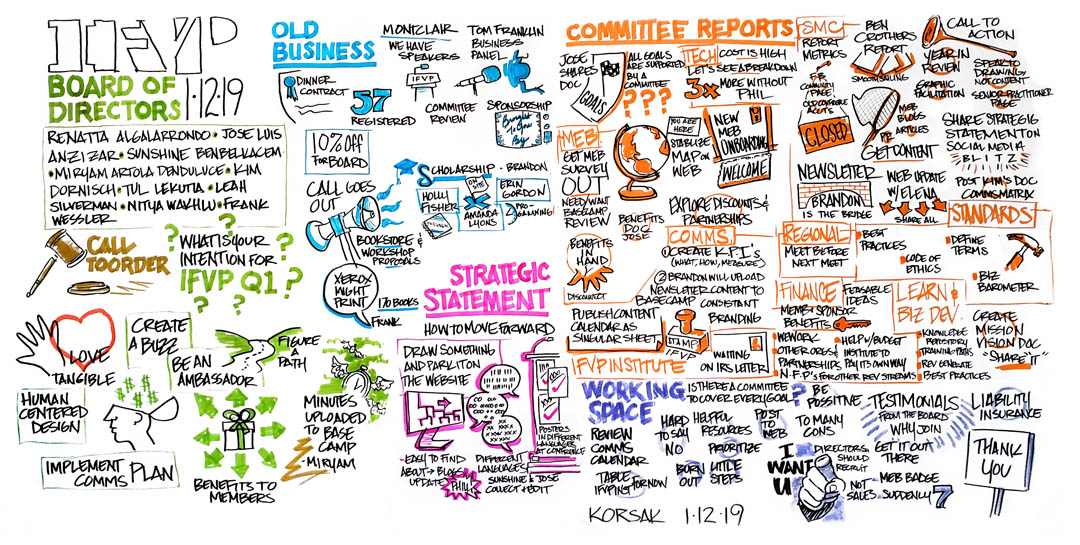 IFVP
BOARD OF
DIRECTORS 1·12·19
RENATTA ALGALARRONDO • JOSE LUIS
ANZIZAR • SUNSHINE BENBELKACEM
• MIRYAM ARTOLA DENDULUCE • KIM
DORNISCH • TUL LEKUTIA • LEAH
SILVERMAN • NITYA WAKHLU • FRANK
WESSLER
CALL
TO ORDER
WHAT IS YOUR
INTENTION FOR
IFVP Q1?
LOVE
TANGIBLE
CREATE
A BUZZ
BE AN
AMBASSADOR
FIGURE
A PATH
HUMAN
CENTERED
DESIGN
$$$$
IMPLEMENT
COMMS PLAN
BENEFITS TO
MEMBERS
MINUTES
UPLOADED
TO BASE
CAMP
-MIRYAM
OLD
BUSINESS
DINNER
CONTRACT
57
REGISTERED
MONTCLAIR
WE HAVE
SPEAKERS
IFVP
COMMITTEE
REVIEW
TOM FRANKLIN
BUSINESS
PANEL
SPONSORSHIP
Brought
To You
By
10% OFF
FOR BOARD
CALL GOES
OUT
SCHOLARSHIP - BRANDON
HOLLY
FISHER
ON SITE
AMANDA
LYONS
ERIN
GORDON
PRO-
GRAMMING
BOOKSTORE &
WORKSHOP
PROPOSALS
XEROX
MIGHT
PRINT
170 BOOKS
FRANK
STRATEGIC
STATEMENT
HOW TO MOVE FORWARD
DRAW SOMETHING
AND PARK IT ON
THE WEBSITE
-EASY TO FIND
ABOUT → BLOGS
UPDATE
PHIL!
DIFFERENT
LANGUAGES
SUNSHINE & JOSE
COLLECT & EDIT
POSTERS
IN DIFFERENT
LANGUAGES
AT CONFERENCE
COMMITTEE REPORTS
JOSE
SHARES
DOC
GOALS
ALL GOALS
ARE SUPPORTED
BY A
COMMITTEE
???
TECH
COST IS HIGH
LET'S SEE A BREAKDOWN
3x
MORE WITHOUT
PHIL
MEB!
GET MEB
SURVEY
OUT
NEED/WANT
BASECAMP
REVIEW
YOU ARE
HERE
STABILIZE
MAP ON
WEB
NEW
MEB
ONBOARDING
WELCOME
BENEFITS
DOC
JOSE
EXPLORE DISCOUNTS &
PARTNERSHIPS
BENEFITS
IN
HAND
DISCONNECT
COMMS.
① CREATE K.P.I'S
(WHAT, HOW, MEASURE)
② BRANDON WILL UPLOAD
NEWSLETTER CONTENT TO
BASECAMP
CONSISTANT
BRANDING
PUBLISH CONTENT
CALENDAR AS
SINGULAR SHEET
STAMP
IFVP
IFVP INSTITUTE
WAITING
ON IRS LETTER
SMC
REPORT
METRICS
F.B.
COMMUNITY
PAGE
OLD CORPORATE
ACCT'S
CLOSED
BEN
CROTHERS
REPORT
SMOOTH SAILING
MEB
BLOGS
PR ARTICLES
GET CONTENT
CALL TO
ACTION
YEAR IN
REVIEW
GRAPHIC
FACILITATION
SPEAK TO
DRAWING
NOT CONTENT
SENIOR PRACTITIONER
PAGE
SHARE STRATEGIS
STATEMENT ON
SOCIAL MEDIA
BLITZ
POST KIM'S DOC
COMMS MATRIX
NEWSLETTER
BRANDON
IS THE BRIDGE
WEB UPDATE
W/ ELENA
SHARE ALL
STANDARDS
REGIONAL
MEET BEFORE
NEXT MEET
BEST
PRACTICES
CODE OF
ETHICS
DEFINE
TERMS
BIZ
BAROMETER
FINANCE
FEASABLE
IDEAS
MEMB/SPONSOR
BENEFITS
WEWORK
OTHER ORGS
PARTNERSHIPS
N.F.P'S
HELP W/ BUDGET
INSTITUTE TO
PAY ITS OWN WAY
FOR OTHER REV STREAMS
LEARN &
BIZ DEV.
KNOWLEDGE
REPOSITORY
TRAINING PATHS
REV GENERATE
BEST PRACTICES
CREATE
MISSION
VISION DOC
"SHARE IT"
WORKING
SPACE
IS THERE A COMMITTEE
TO COVER EVERY GOAL?
REVIEW
COMMS
CALENDAR
TABLE
IFVPING FOR NOW
HARD
TO SAY
NO
HELPFUL
RESOURCES
PRIORITIZE
BURN
OUT
LITTLE
STEPS
POST
TO
MEB
BE
POSITIVE
TO MANY
CONS
I
WANT
U
DIRECTORS
SHOULD
RECRUIT
NOT
SALES
TESTIMONIALS
FROM THE BOARD
WHY JOIN
GET IT OUT
THERE
MEB BADGE
SUDDENLY 7
LIABILITY
INSURANCE
THANK
YOU
KORSAK 1·12·19